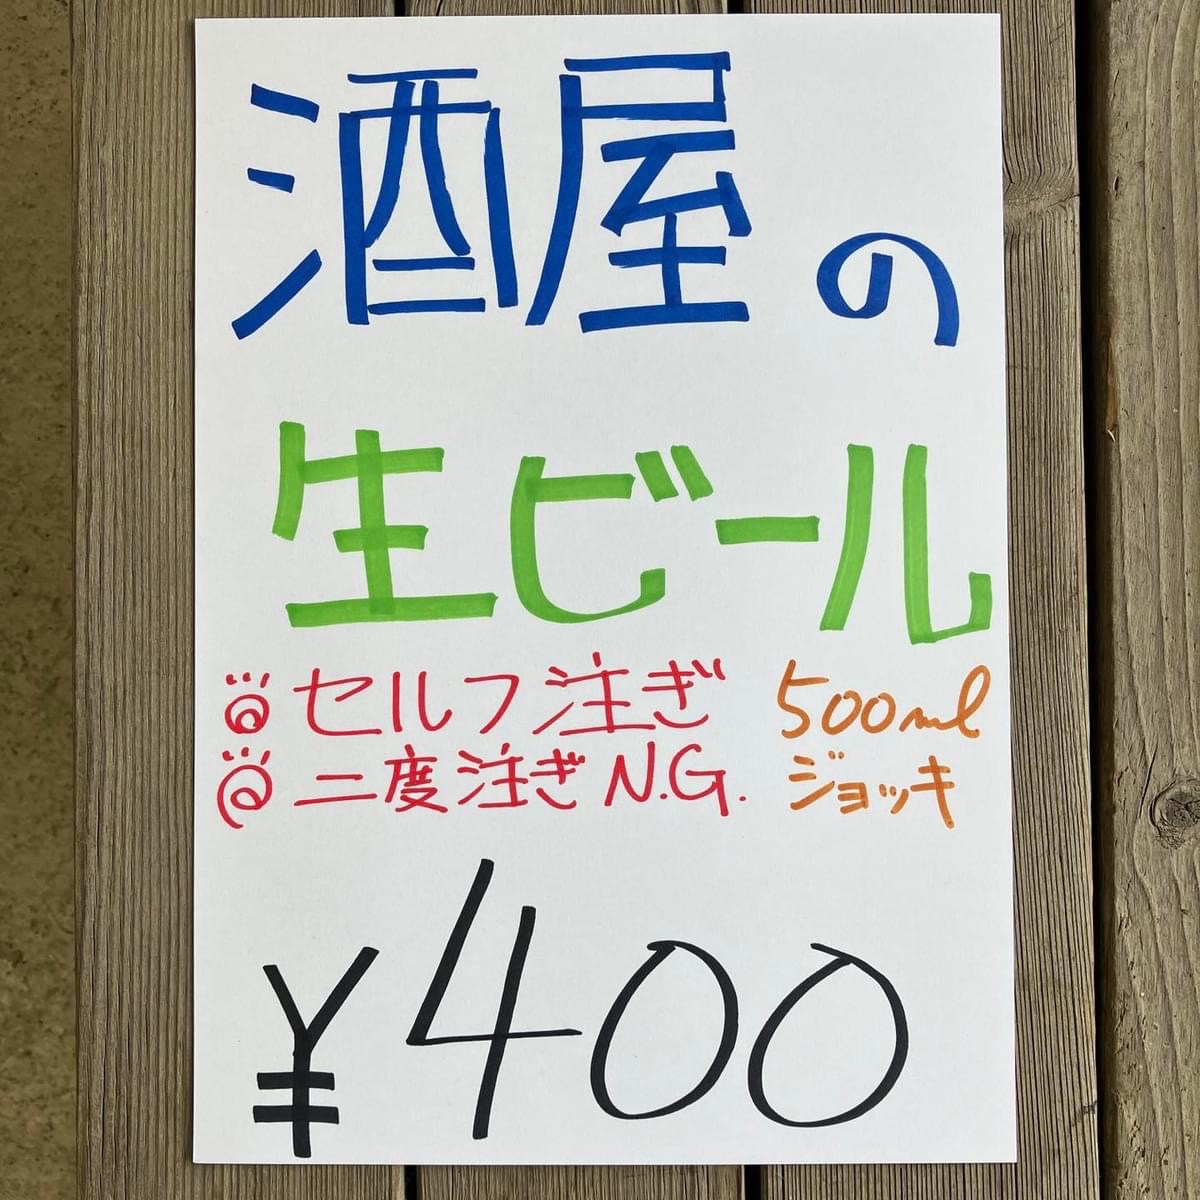 酒屋の
生ビール
セルフ注ぎ
二度注ぎN.G.
500ml
ジョッキ
¥400